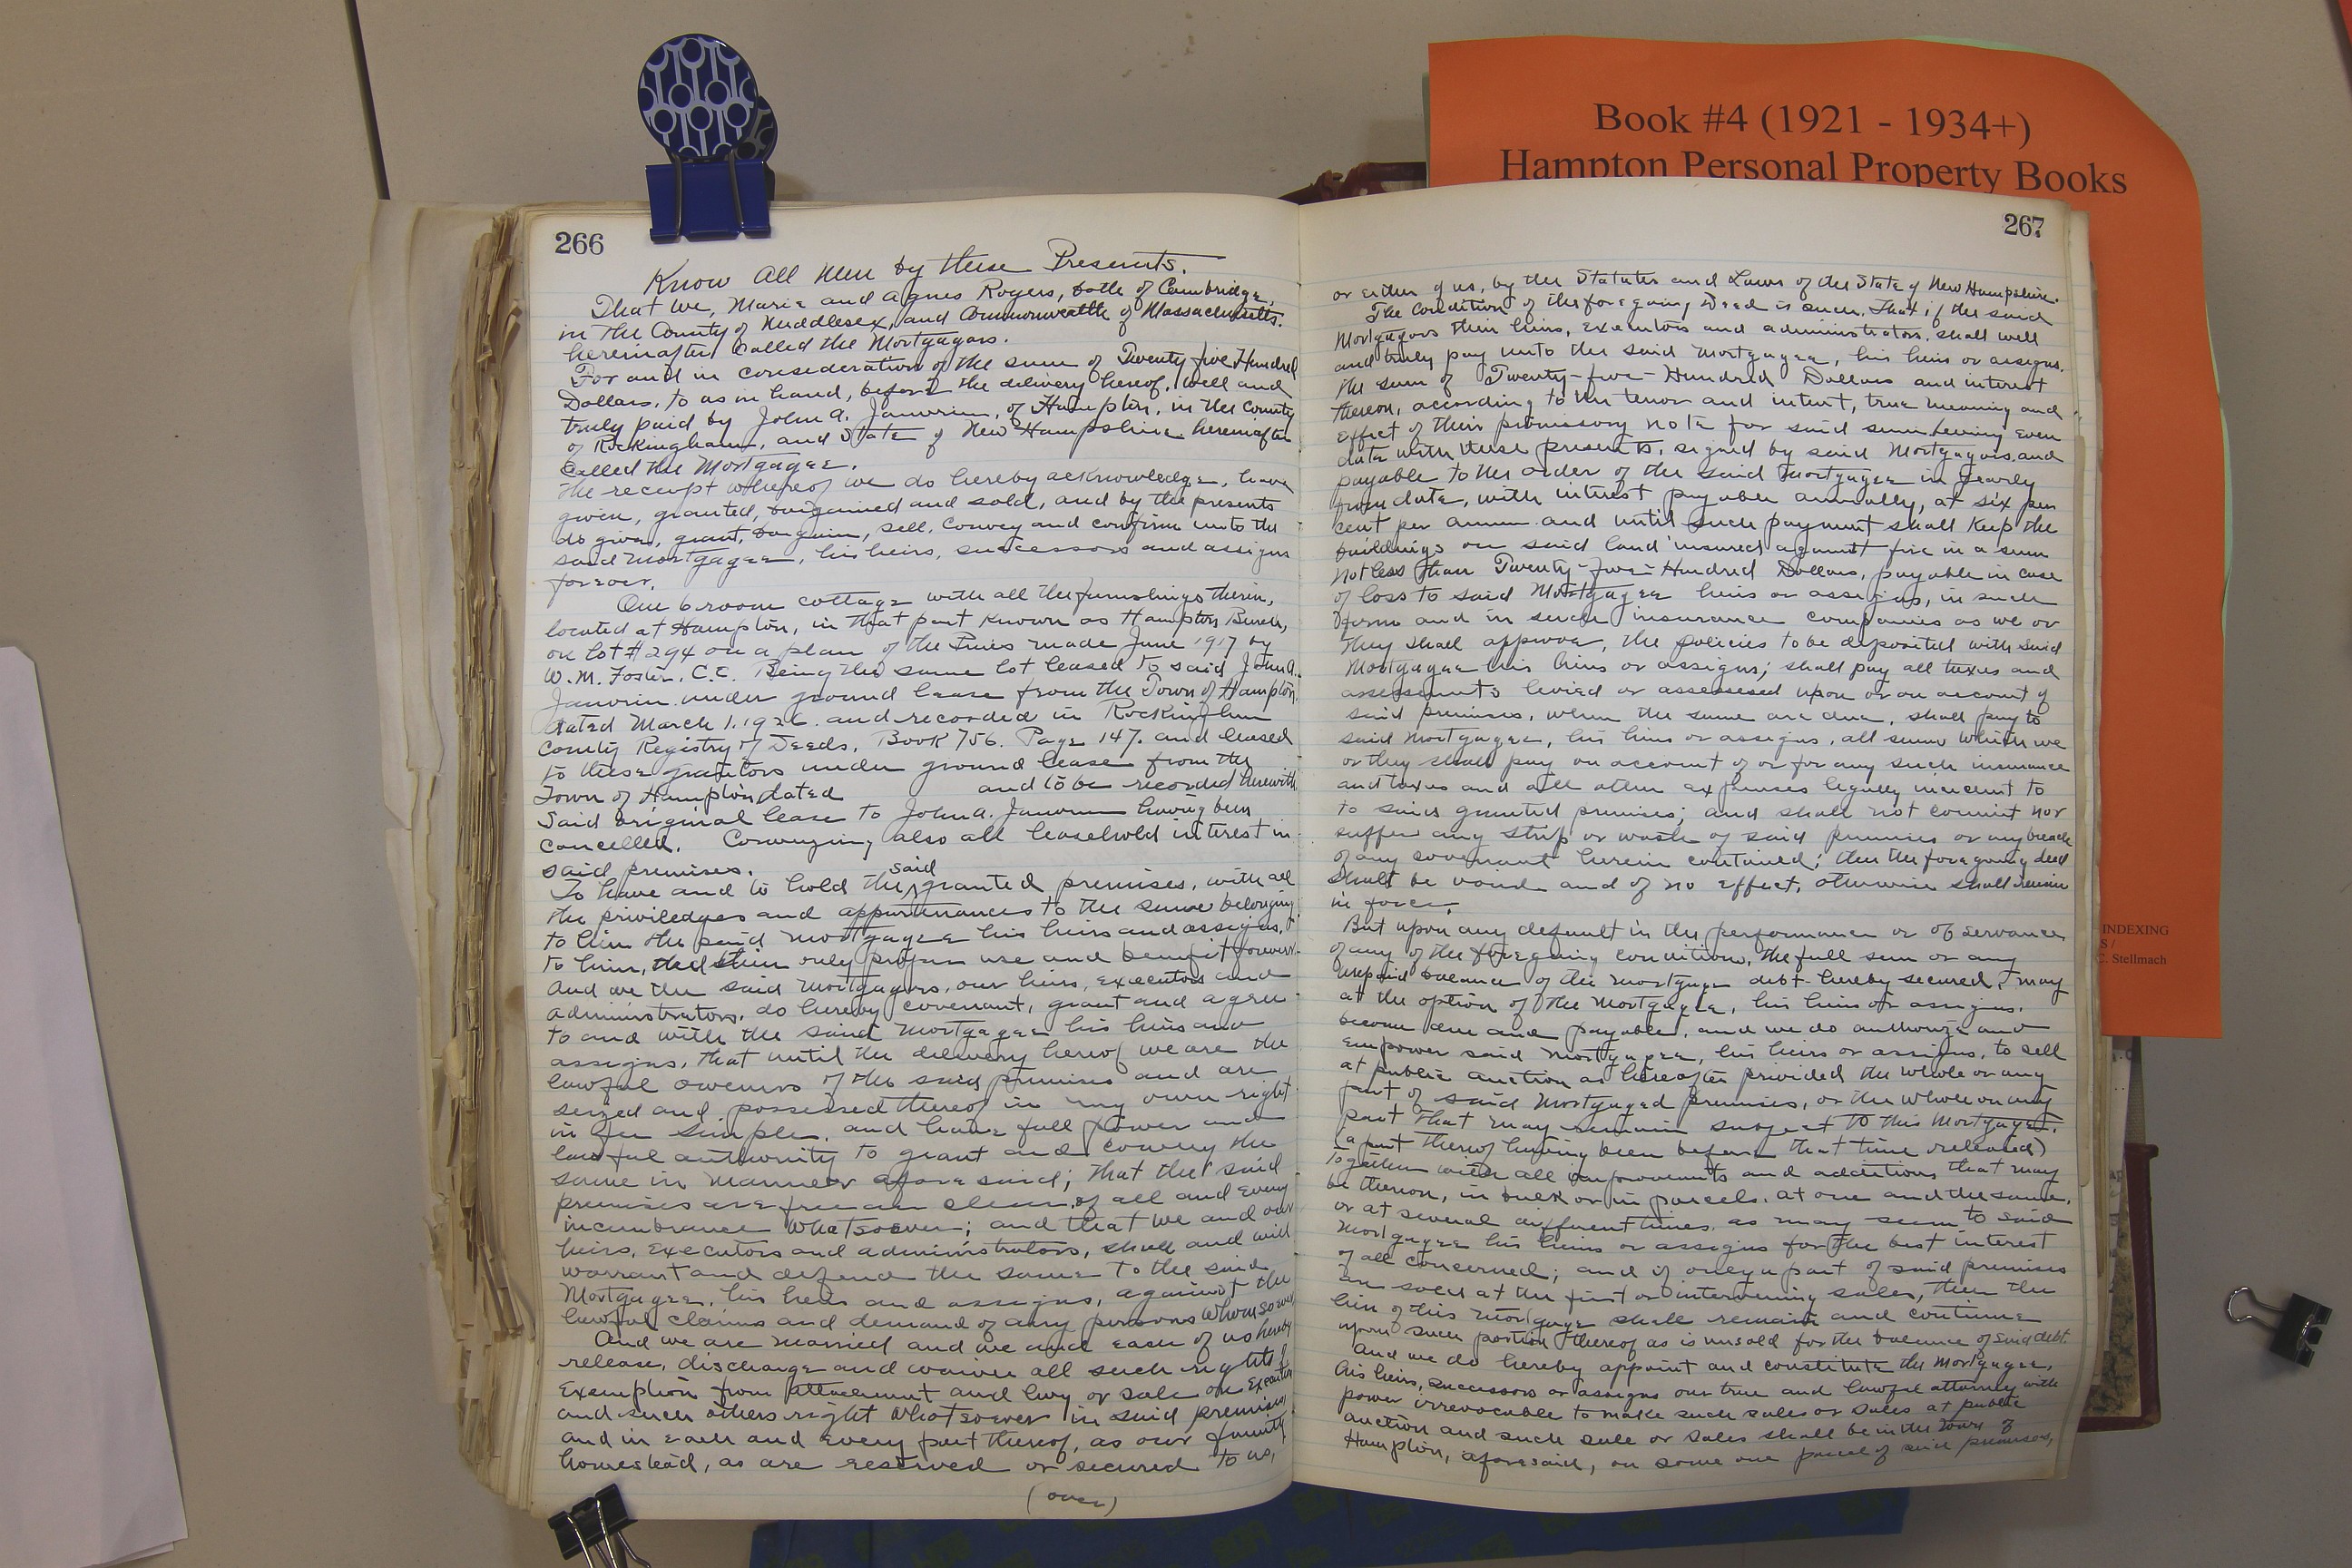 Book #4 (1921 - 1934+)
Hampton Personal Property Books
INDEXING
S /
C. Stellmach
266
Know All Men by these Presents.
That We, Marie and Agnes Rogers, both of Cambridge,
in the County of Middlesex, and Commonwealth of Massachusetts.
hereinafter Called the Mortgagors.
For and in consideration of the sum of Twenty five Hundred
Dollars, to us in hand, before the delivery hereof, well and
truly paid by John A. Janvrin, of Hampton, in the County
of Rockingham, and State of New Hampshire hereinafter
Called the Mortgagee.
the receipt whereof we do hereby acknowledge, have
given, granted, bargained and sold, and by the presents
do give, grant, bargain, sell, convey and confirm unto the
said Mortgagee, his heirs, successors and assigns
forever.
One 6 room cottage with all the furnishings therein,
located at Hampton, in that part known as Hampton Beach,
on lot #294 on a plan of the Pines made June 1917 by
W. M. Foster. C.E. Being the same lot leased to said John A.
Janvrin under ground lease from the Town of Hampton
dated March 1. 1926. and recorded in Rockingham
County Registry of Deeds, Book 756. Page 147. and leased
to these grantors under ground lease from the
Town of Hampton dated and to be recorded herewith
Said original lease to John A. Janvrin having been
cancelled. Conveying also all leasehold interest in
said premises.
To have and to hold the said granted premises, with all
the priviledges and appurtenances to the same belonging
to him the said Mortgagee his heirs and assigns,
to him, their only proper use and benefit forever
And we the said Mortgagors, our heirs, executors and
administrators, do hereby covenant, grant and agree
to and with the said Mortgagee his heirs and
assigns, that until the delivery hereof we are the
lawful owners of the said premises and are
seized and possessed thereof in my own right
in fee simple, and have full power and
lawful authority to grant and convey the
same in manner aforesaid; that the said
premises are free an clear of all and every
incumbrance whatsoever; and that we and our
heirs, executors and administrators, shall and will
warrant and defend the same to the said
Mortgagee, his heirs and assigns, against the
lawful claims and demand of any persons whomsoever
And we are married and we and each of us hereby
release, discharge and waive all such rights of
exemption from attachment and levy or sale on execution
and such others right whatsoever in said premises
and in each and every part thereof, as our family
homestead, as are reserved or secured to us,
(over)
267
or either of us, by the Statutes and Laws of the State of New Hampshire.
The Condition of the foregoing Deed is such, That if the said
Mortgagors their heirs, executors and administrators, shall well
and truly pay unto the said Mortgagee, his heirs or assigns.
the sum of Twenty-five-Hundred Dollars and interest
thereon, according to the tenor and intent, true meaning and
effect of their promissory note for said sum bering even
date with these presents, signed by said Mortgagors. and
payable to the order of the said Mortgagee in yearly
from date, with interest payable annually, at six per
cent per annum and until such payment shall keep the
buildings on said land insured against fire in a sum
not less than Twenty-five-Hundred Dollars, payable in case
of loss to said Mortgagee heirs or assigns, in such
form and in such insurance companies as we or
they shall approve, the policies to be deposited with said
Mortgagee his heirs or assigns; shall pay all taxes and
assessments levied or assessed upon or on account of
said premises, when the same are due, shall pay to
said Mortgagee, his heirs or assigns, all sums which we
or they shall pay on account of or for any such insurance
and taxes and all other expenses legally incident to
to said granted premises; and shall not commit nor
suffer any strip or waste of said premises or any breach
of any covenant herein contained; then the foregoing deed
shall be void and of no effect, otherwise shall remain
in force.
But upon any default in the performance or of servance
of any of the foregoing conditions, the full sum or any
unpaid balance of the mortgage debt hereby secured, may
at the option of the Mortgagee, his heirs or assigns.
become due and payable, and we do authorize and
empower said Mortgagee, his heirs or assigns, to sell
at public auction as hereafter provided the whole or any
part of said Mortgaged premises, or the whole or any
part that may remain subject to this Mortgage.
(a part thereof having been before that time released)
together with all improvements and additions that may
be thereon, in bulk or in parcels. at one and the same,
or at several different times. as may seem to said
Mortgagee his heirs or assigns for the best interest
of all concerned; and if only a part of said premises
are sold at the first or intervening sales, then the
lien of this mortgage shall remain and continue
upon such portion thereof as is unsold for the balance of said debt.
And we do hereby appoint and constitute the Mortgagee,
his heirs, successors or assigns our true and lawful attorney with
power irrevocable to make such sales or sales at public
auction and such sale or sales shall be in the Town of
Hampton, aforesaid, on some one parcel of said premises,